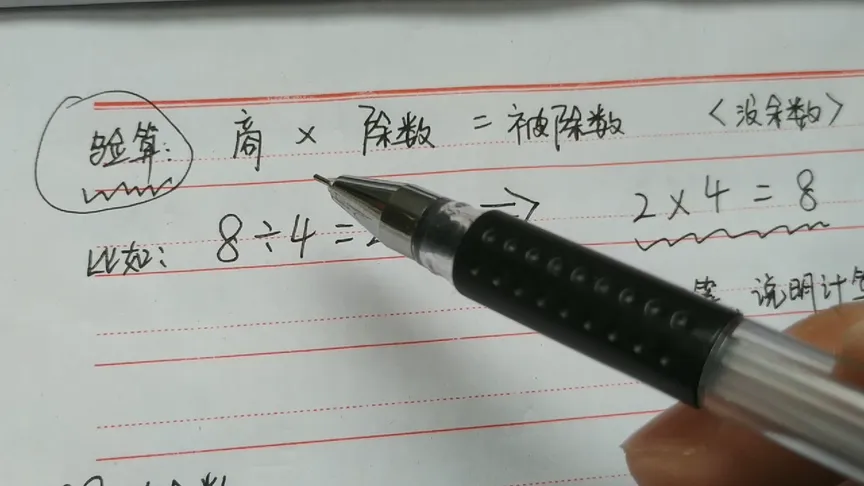 验算: 商 × 除数 = 被除数 <没余数>
比如: 8÷4= ⇒ 2×4=8
说明计算
数